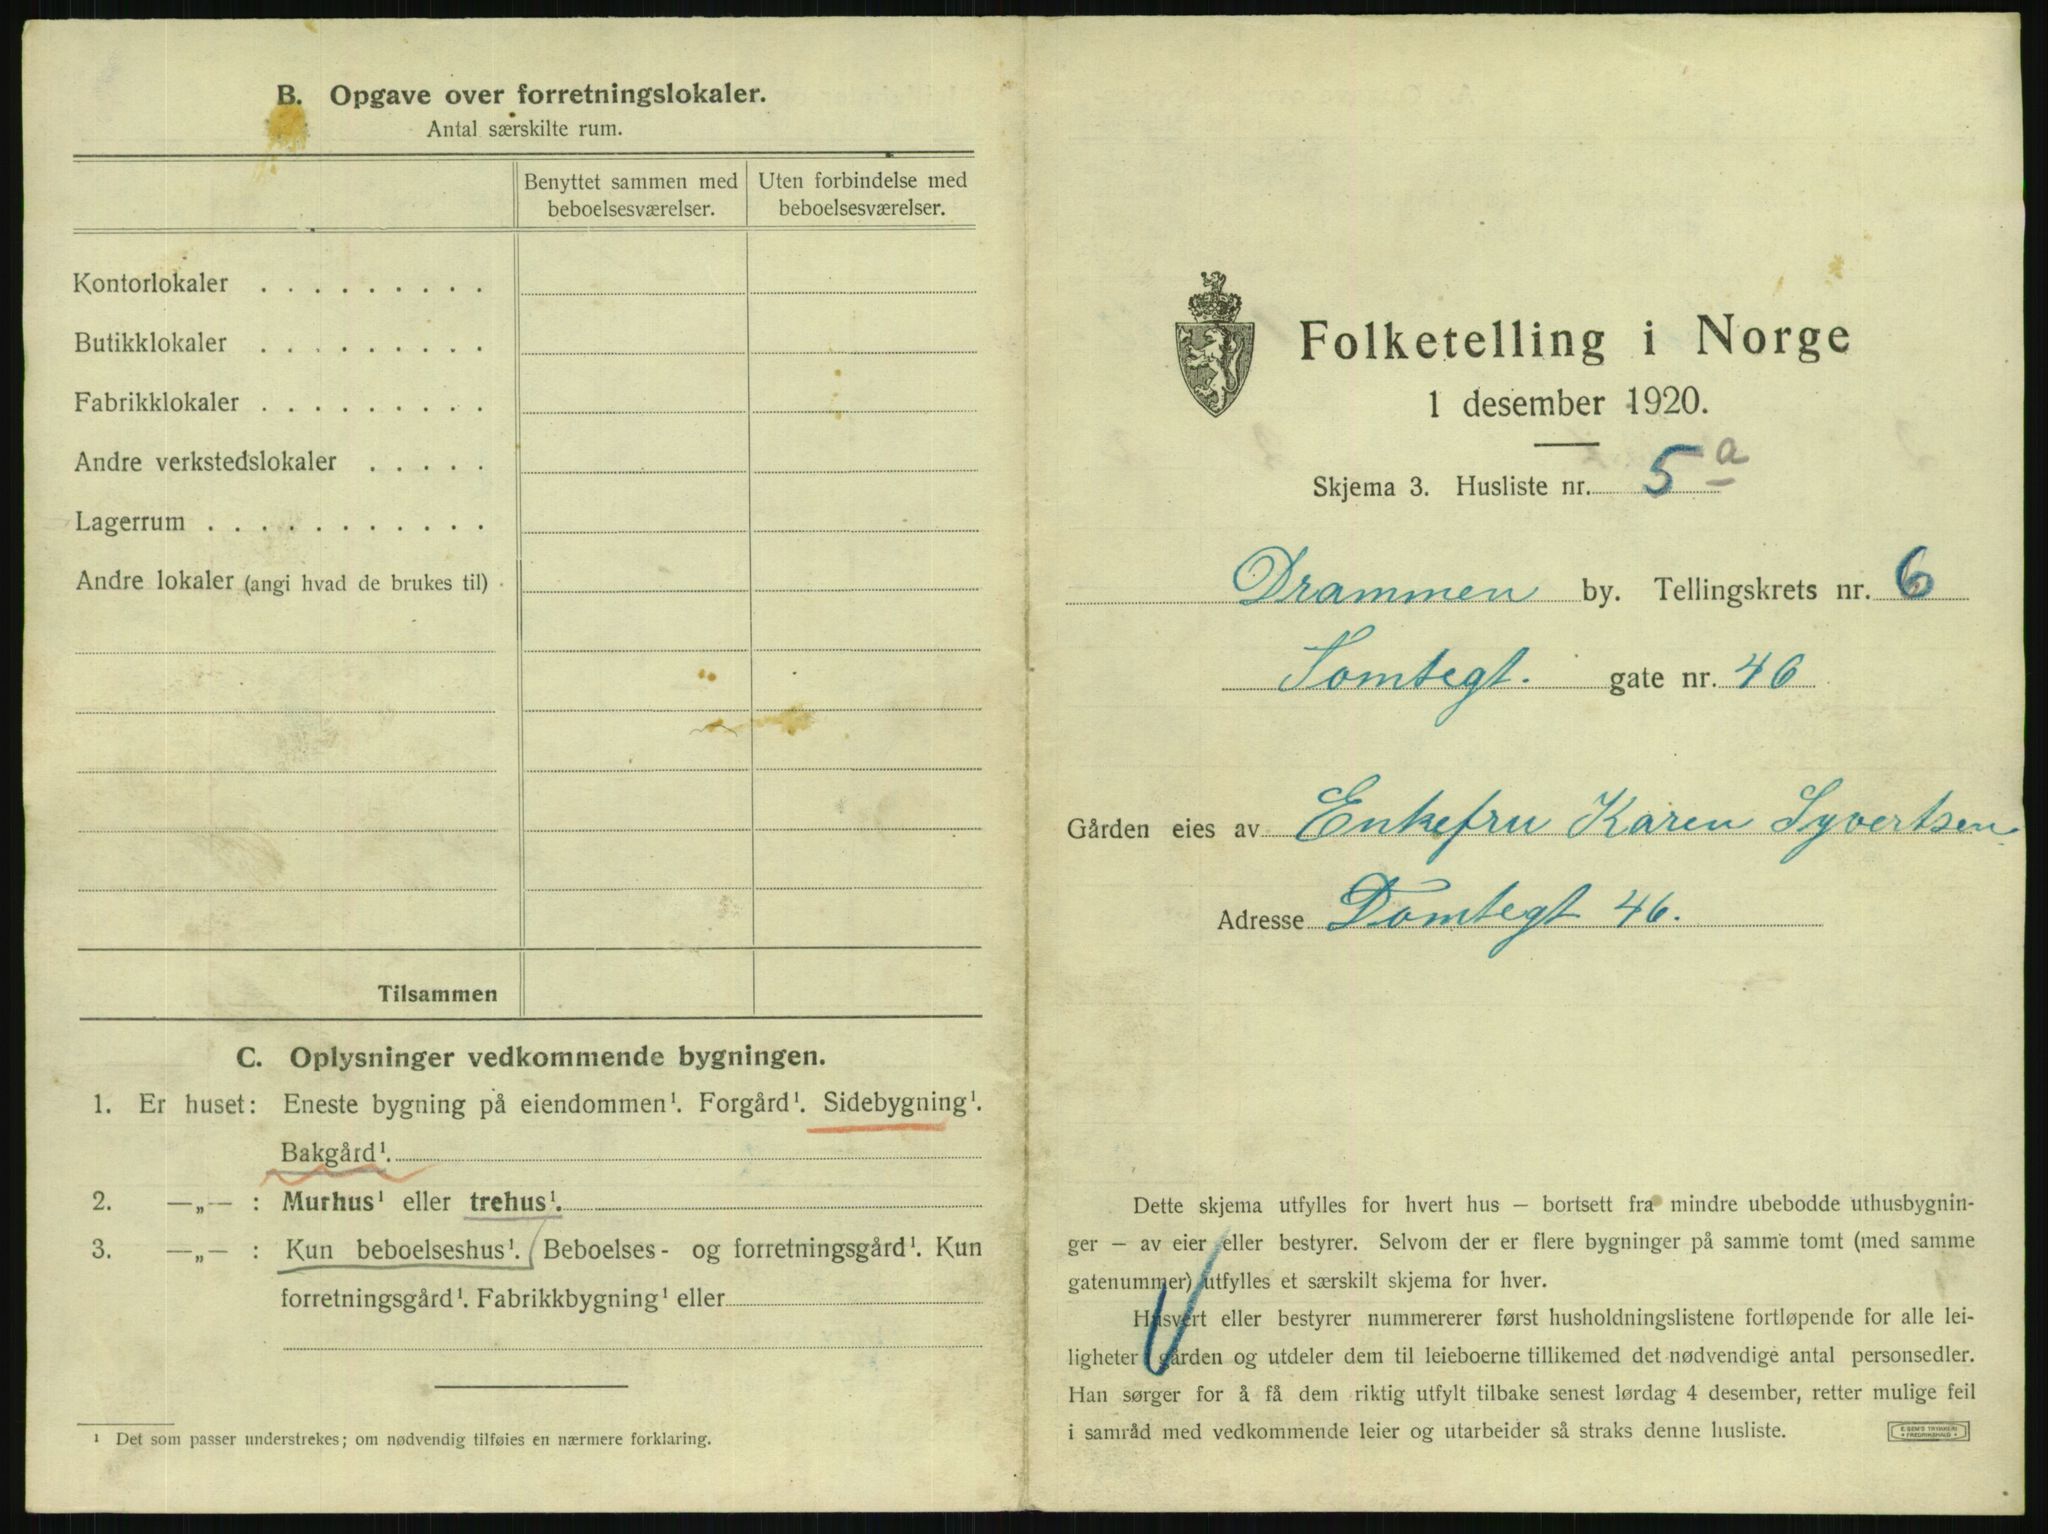 B. Opgave over forretningslokaler.
Antal særskilte rum.
Benyttet sammen med beboelsesværelser.
Uten forbindelse med beboelsesværelser.
Kontorlokaler . . . . . . . . .
Butikklokaler . . . . . . . . .
Fabrikklokaler . . . . . . . . .
Andre verkstedslokaler . . . . .
Lagerrum . . . . . . . . . . .
Andre lokaler (angi hvad de brukes til)
Tilsammen
C. Oplysninger vedkommende bygningen.
1. Er huset: Eneste bygning på eiendommen¹. Forgård¹. Sidebygning¹.
Bakgård¹.
2. —„— : Murhus¹ eller trehus¹.
3. —„— : Kun beboelseshus¹. Beboelses- og forretningsgård¹. Kun
forretningsgård¹. Fabrikkbygning¹ eller
¹ Det som passer understrekes; om nødvendig tilføies en nærmere forklaring.
Folketelling i Norge
1 desember 1920.
Skjema 3. Husliste nr. 5a
Drammen by. Tellingskrets nr. 6
Tomtegt. gate nr. 46
Gården eies av Enkefru Karen Syvertsen
Adresse Tomtegt 46.
Dette skjema utfylles for hvert hus – bortsett fra mindre ubebodde uthusbygnin-
ger – av eier eller bestyrer. Selvom der er flere bygninger på samme tomt (med samme
gatenummer) utfylles et særskilt skjema for hver.
Husvert eller bestyrer nummererer først husholdningslistene fortløpende for alle lei-
ligheter i gården og utdeler dem til leieboerne tillikemed det nødvendige antal personsedler.
Han sørger for å få dem riktig utfylt tilbake senest lørdag 4 desember, retter mulige feil
i samråd med vedkommende leier og utarbeider så straks denne husliste.
E. SEM'S TRYKKERI
FREDRIKSHALD